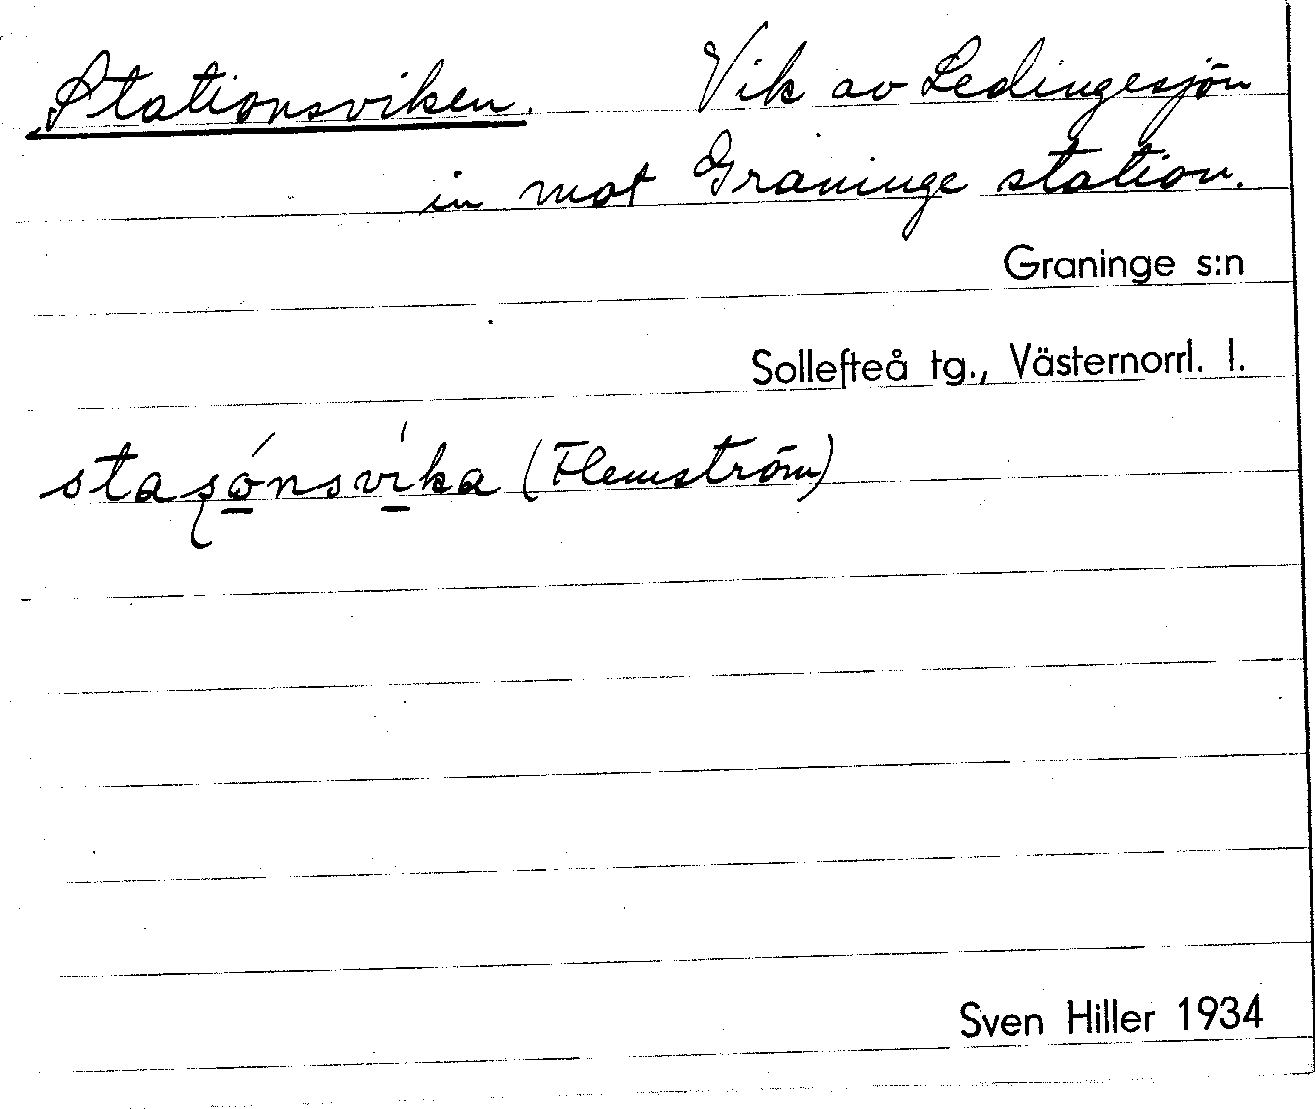 Stationsviken. Vik av Ledingesjön
in mot Graninge station.
Graninge s:n
Sollefteå tg., Västernorrl. l.
(Flemström)
Sven Hiller 1934